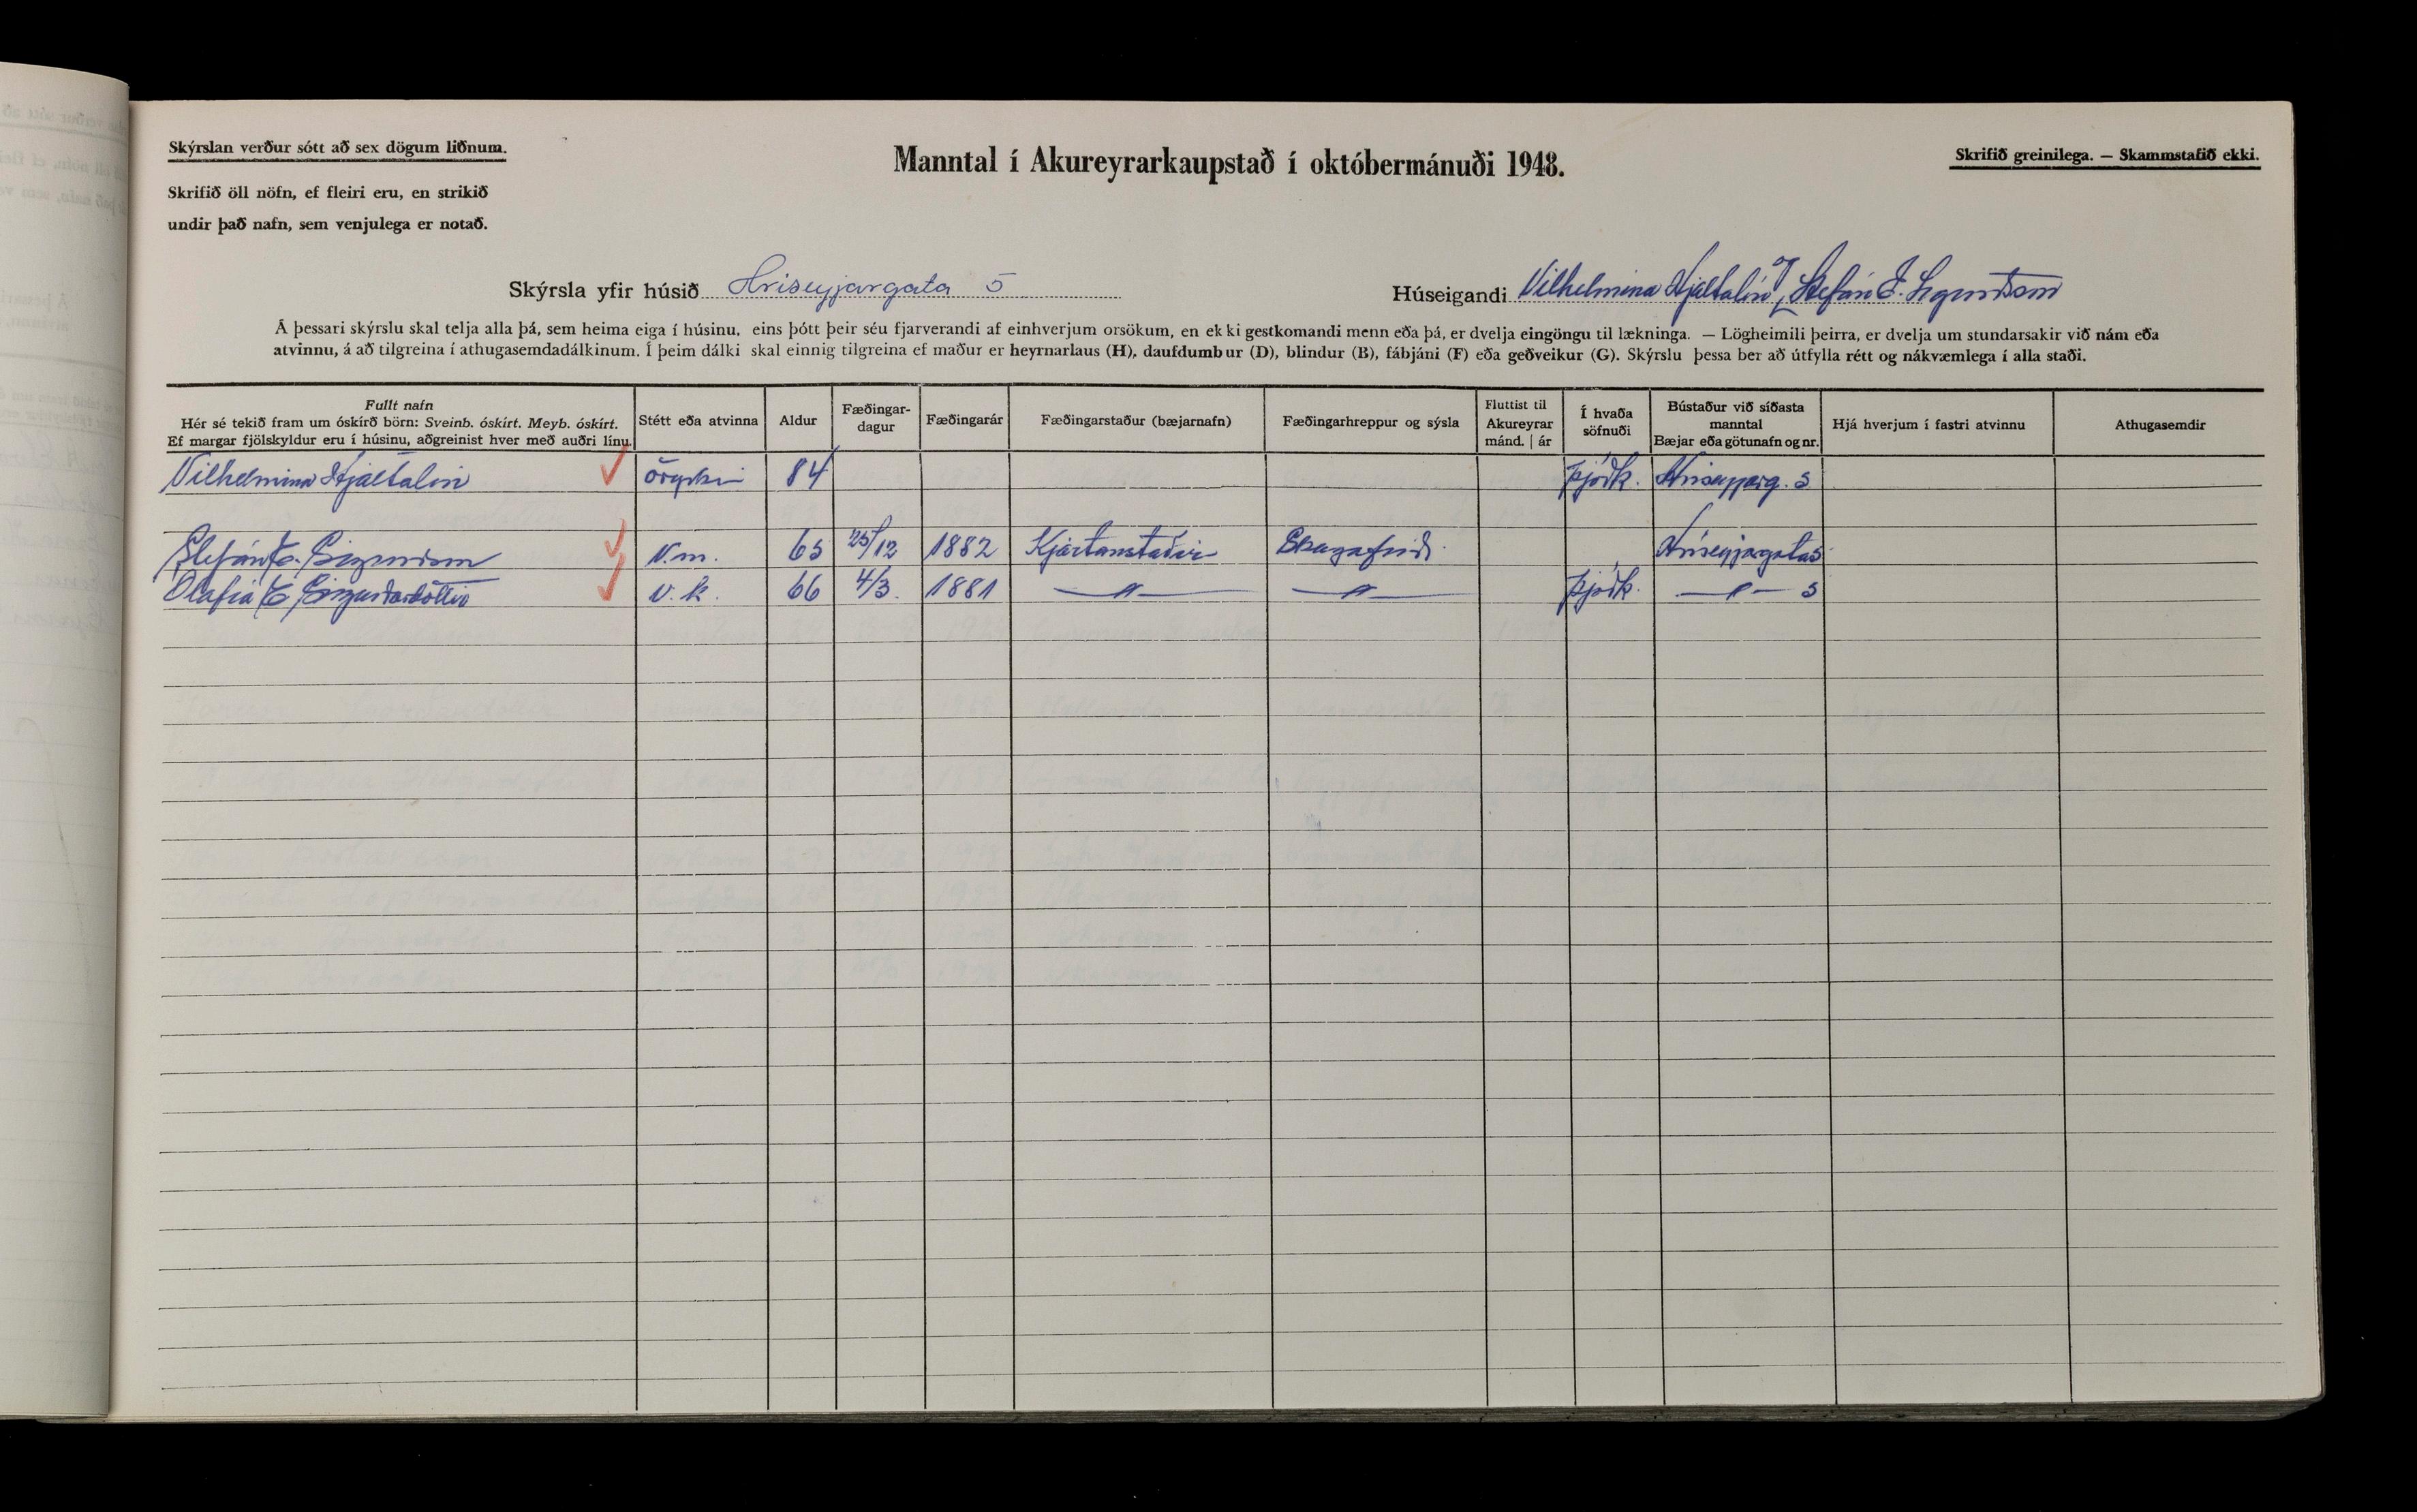 Skýrslan verður sótt að sex dögum liðnum.
Skrifið öll nöfn, ef fleiri eru, en strikið
undir það nafn, sem venjulega er notað.
Manntal í Akureyrarkaupstað í októbermánuði 1948.
Skrifið greinilega. — Skammstafið ekki.
Skýrsla yfir húsið Hriseyjargata 5
Húseigandi Vilhelmina Hjaltalín og Stefán
Á þessari skýrslu skal telja alla þá, sem heima eiga í húsinu, eins þótt þeir séu fjarverandi af einhverjum orsökum, en ekki gestkomandi menn eða þá, er dvelja eingöngu til lækninga. — Lögheimili þeirra, er dvelja um stundarsakir við nám eða
atvinnu, á að tilgreina í athugasemdadálkinum. Í þeim dálki skal einnig tilgreina ef maður er heyrnarlaus (H), daufdumbur (D), blindur (B), fábjáni (F) eða geðveikur (G). Skýrslu þessa ber að útfylla rétt og nákvæmlega í alla staði.
Fullt nafn
Hér sé tekið fram um óskírð börn: Sveinb. óskírt. Meyb. óskírt.
Ef margar fjölskyldur eru í húsinu, aðgreinist hver með auðri línu.
Stétt eða atvinna
Aldur
Fæðingar-
dagur
Fæðingarár
Fæðingarstaður (bæjarnafn)
Fæðingarhreppur og sýsla
Fluttist til
Akureyrar
mánd. | ár
Í hvaða
söfnuði
Bústaður við síðasta
manntal
Bæjar eða götunafn og nr.
Hjá hverjum í fastri atvinnu
Athugasemdir
Vilhelmina Hjaltalin 84 Þjóðk. Hriseyjarg. 5
Stefán V.m. 65 25/12 1882 Kjartanstaðir Skagafirði
Olafia V.k. 66 4/3. 1881 —〃— —〃— Þjóðk. —〃— 5